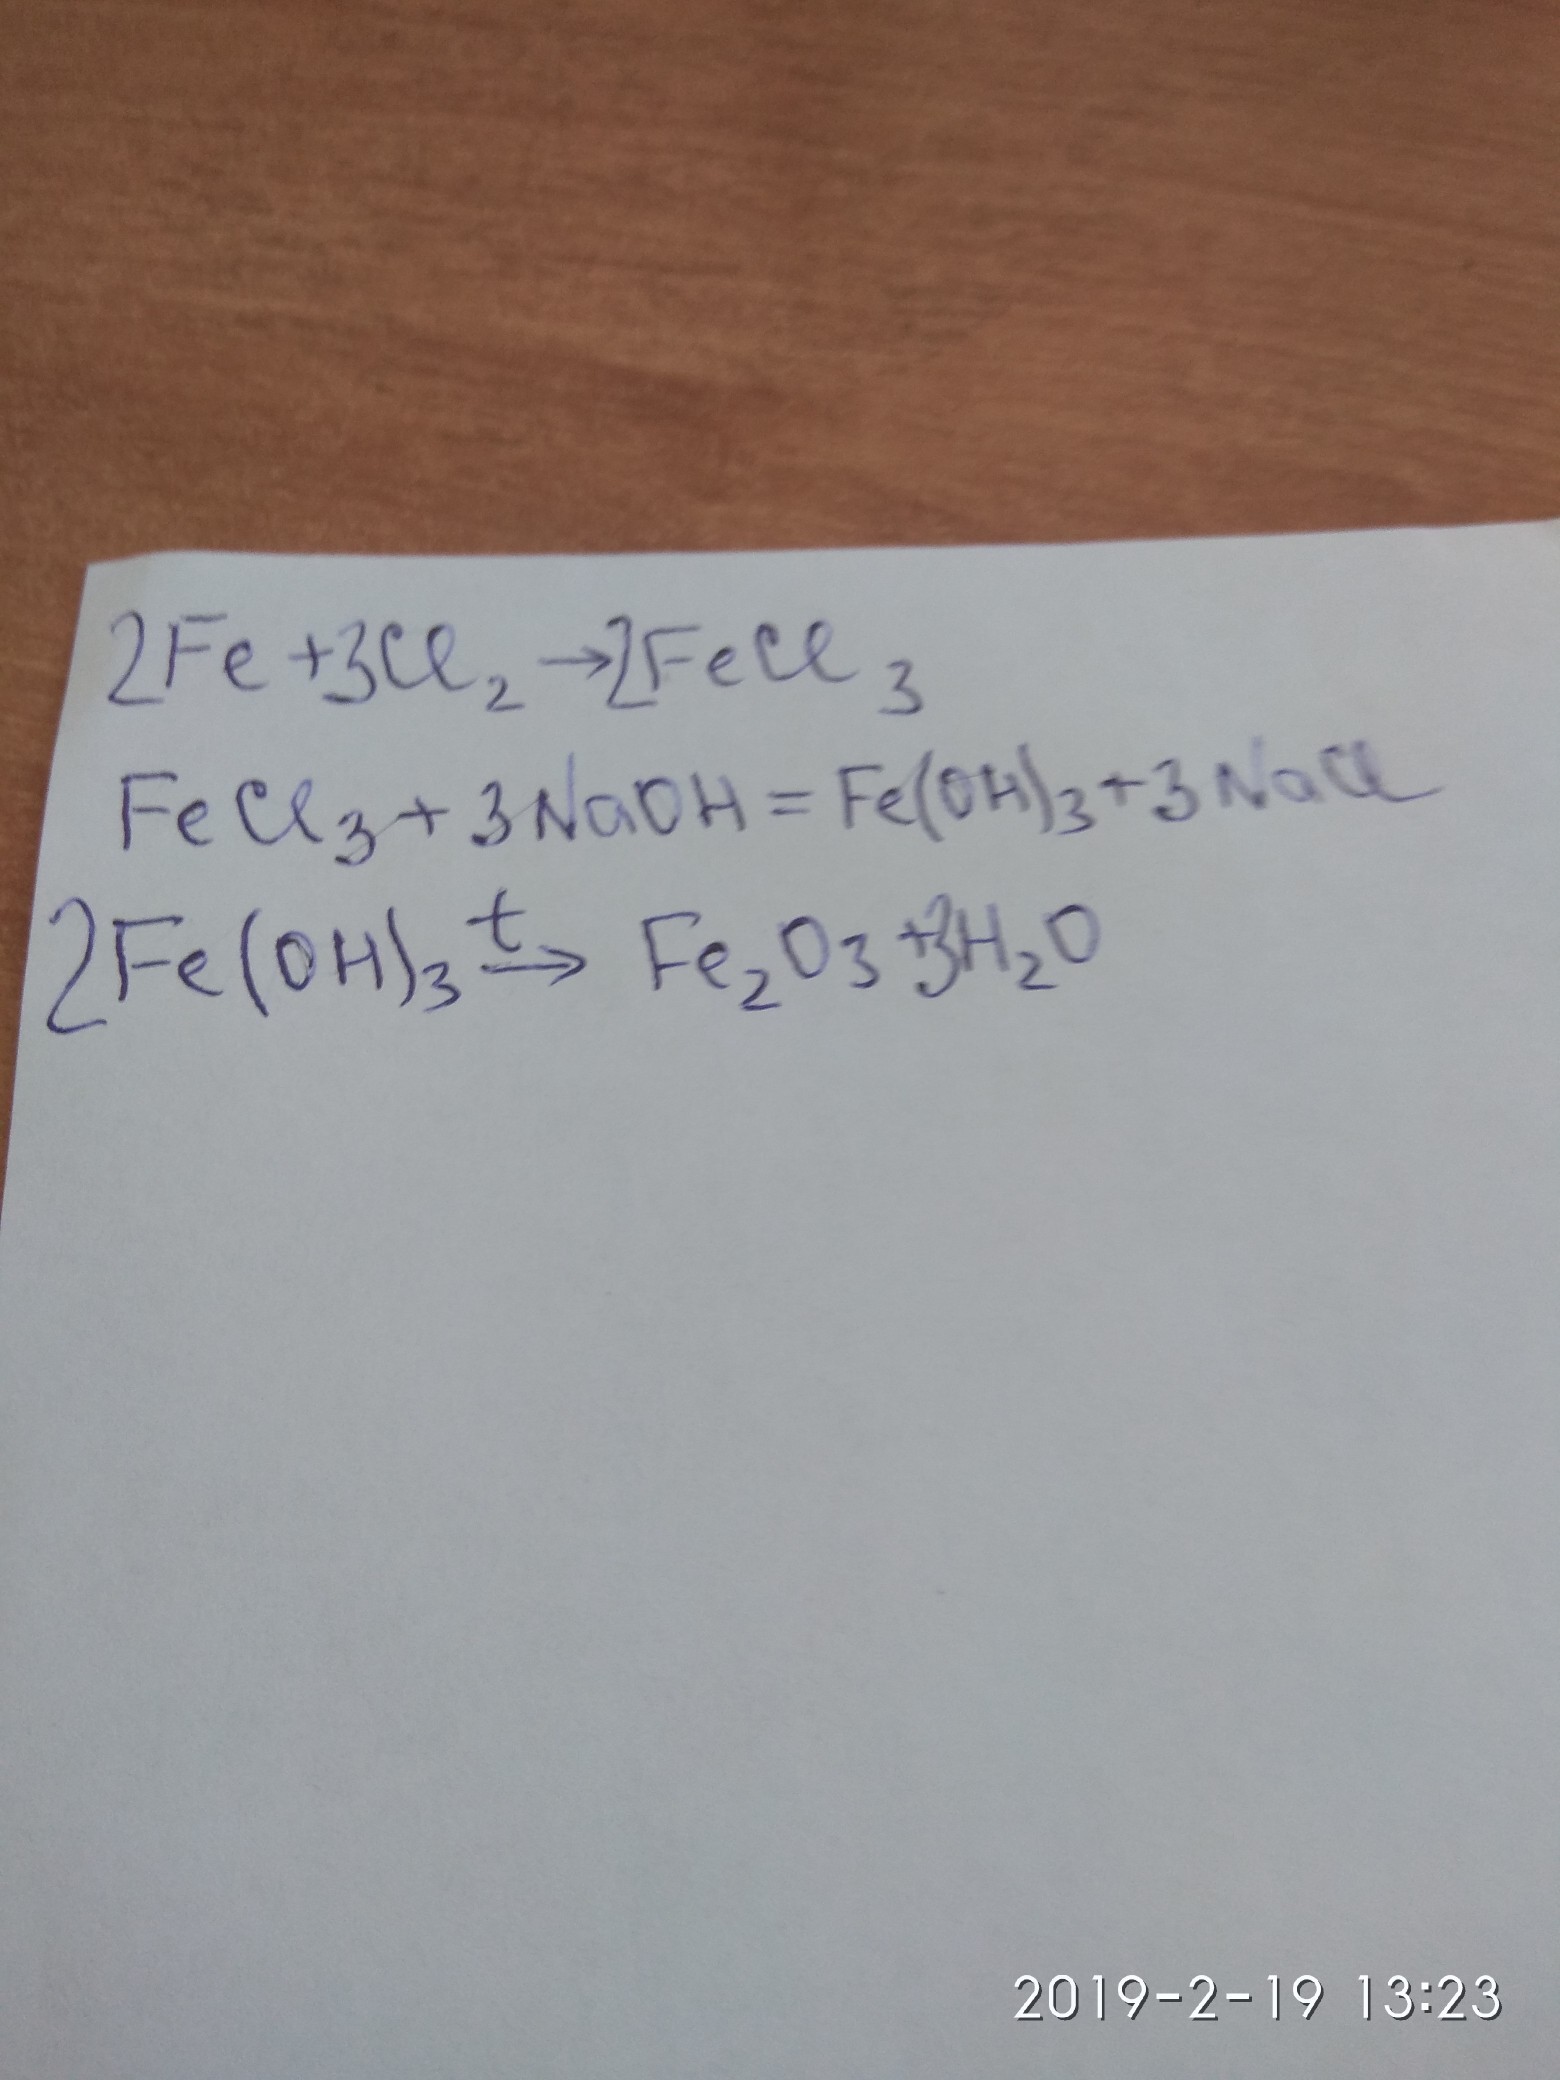 2Fe+3Cl₂→2FeCl₃
FeCl₃+3NaOH=Fe(OH)₃+3NaCl
2Fe(OH)₃ t→ Fe₂O₃+3H₂O
2019-2-19 13:23